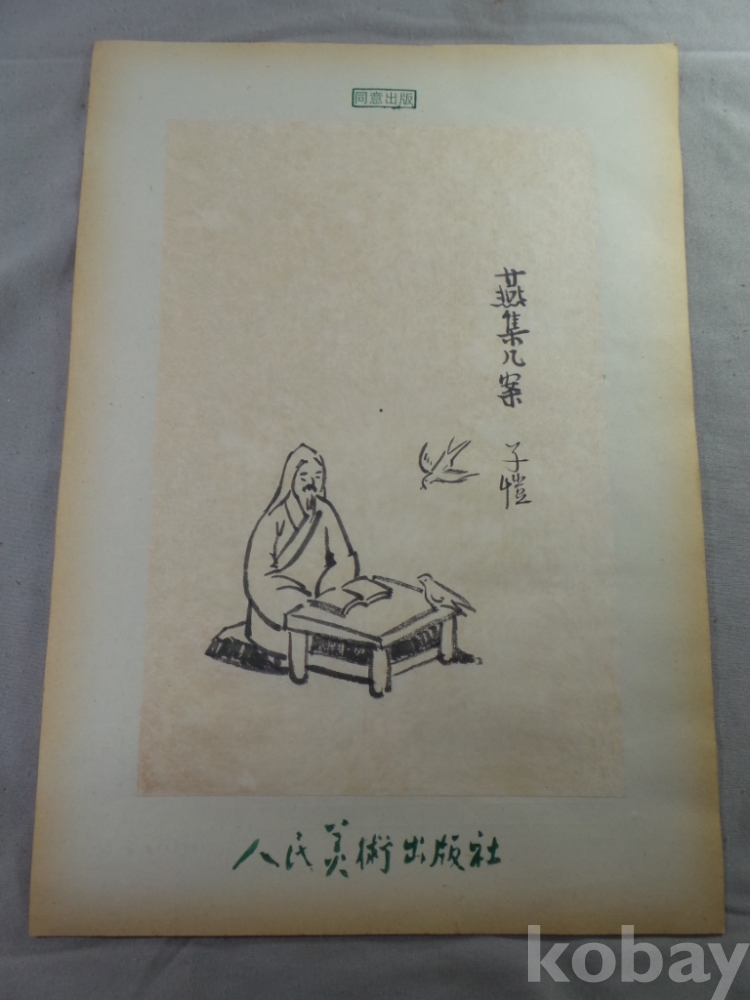 同意出版
燕集几案 子愷
人民美術出版社
kobay